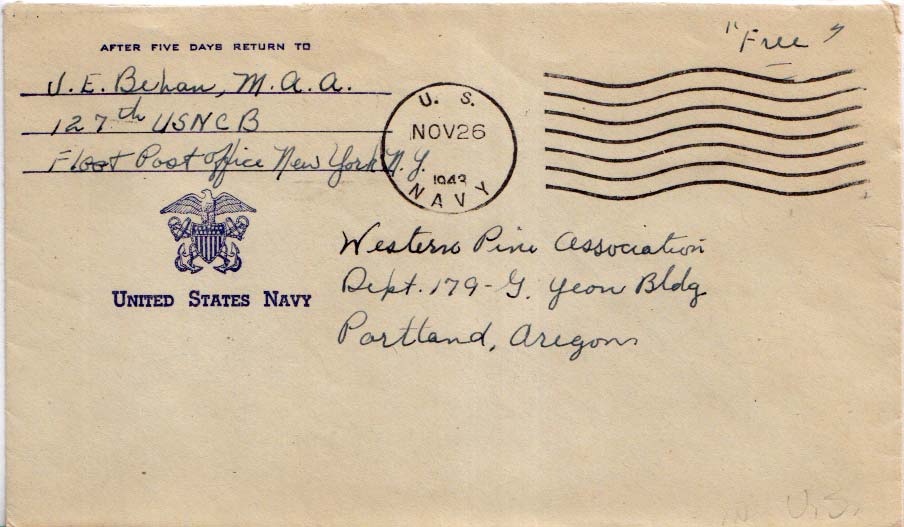 "Free"
AFTER FIVE DAYS RETURN TO
J. E. Behan, M.A.A.
127th USNCB
Fleet Post Office New York N.Y.
U. S.
NOV 26
1943
NAVY
UNITED STATES NAVY
Western Pine Association
Dept. 179-G. Yeon Bldg
Portland, Oregon
U.S.